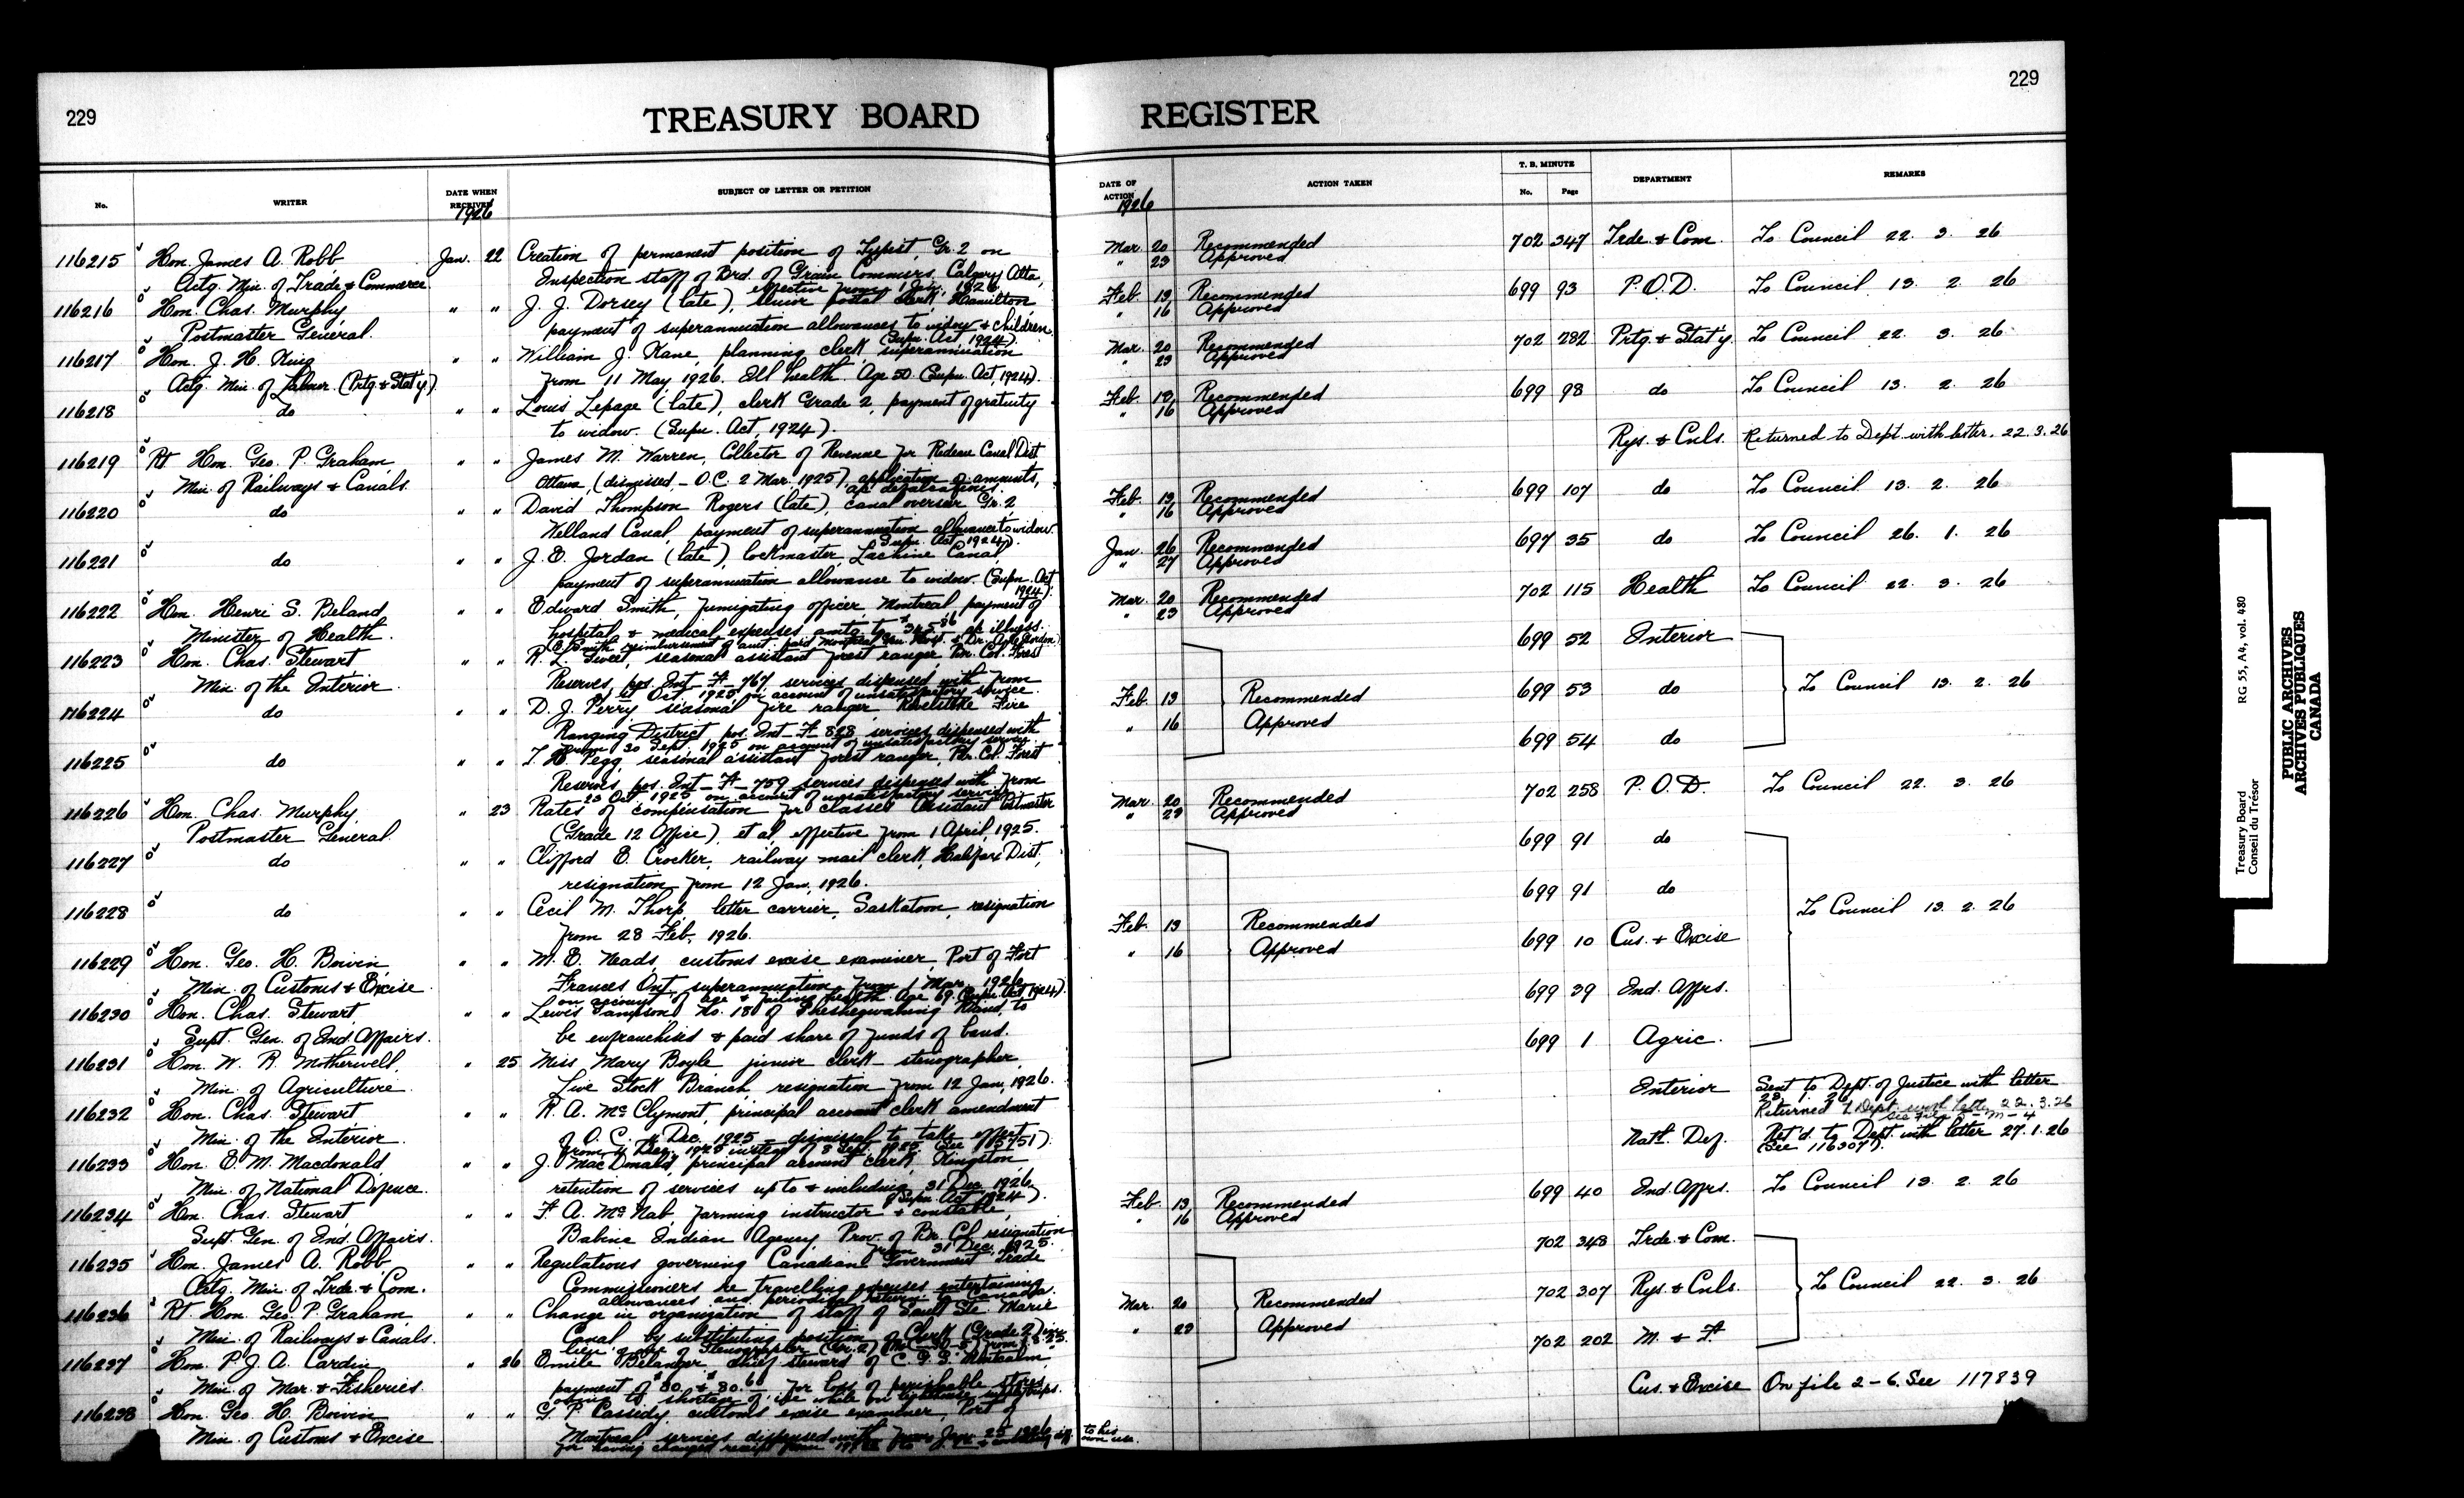 229
TREASURY BOARD
No.
WRITER
DATE WHEN
RECEIVED
1926
SUBJECT OF LETTER OR PETITION
116215 Hon. James A. Robb Jan. 22 Creation of permanent position of Typist, Gr. 2 on
Actg. Min. of Trade & Commerce. Inspection staff of Brd. of Grain Commrs, Calgary, Alta,
effective from 1 Jan. 1926.
116216 Hon. Chas. Murphy " " J. J. Dorsey (late), senior postal clerk, Hamilton
Postmaster General. payment of superannuation allowances to widow & children.
(Supn. Act, 1924).
116217 Hon. J. H. King " " William J. Kane, planning clerk, superannuation
Actg. Min. of Labour. (Prtg & Stat'y). from 11 May, 1926. Ill health. Age 50. (Supn. Act, 1924).
116218 do " " Louis Lepage (late), clerk Grade 2, payment of gratuity
to widow. (Supn. Act, 1924).
116219 Rt. Hon. Geo. P. Graham, " " James M. Warren, Collector of Revenue for Rideau Canal Dist
Min. of Railways & Canals. Ottawa, (dismissed - O.C. 2 Mar. 1925), application of amounts,
a/c defalcations.
116220 do " " David Thompson Rogers (late), canal overseer Gr. 2,
Welland Canal, payment of superannuation allowance to widow.
Supn. Act 1924).
116221 do " " J. E. Jordan (late), lockmaster Lachine Canal,
payment of superannuation allowance to widow. (Supn. Act
1924).
116222 Hon. Henri S. Beland, " " Edward Smith, fumigating officer Montreal, payment of
Minister of Health. hospital & medical expenses amtg to a/c illness.
116223 Hon. Chas. Stewart " " R. L. Sweet, seasonal assistant forest ranger, Br. Col. Forest
Min. of the Interior. Reserves, pos. Int-F-767 services dispensed with from
Oct. 1925 on account of unsatisfactory service.
116224 do " " D. J. Perry seasonal fire ranger, Revelstoke Fire
Ranging District pos. Int-F-828, services dispensed with
from 30 Sept. 1925 on account of unsatisfactory service.
116225 do " " T. H. Pegg, seasonal assistant forest ranger, Br. Col. Forest
Reserves, pos. Int-F-759 services dispensed with from
23 Oct 1925 on account of unsatisfactory service.
116226 Hon. Chas. Murphy, " 23 Rates of compensation for classes Assistant Postmaster
Postmaster General (Grade 12 Office), et al, effective from 1 April, 1925.
116227 do " " Clifford E. Crocker, railway mail clerk, Halifax Dist,
resignation from 12 Jan, 1926.
116228 do " " Cecil M. Thorp, letter carrier, Saskatoon, resignation
from 28 Feb, 1926.
116229 Hon. Geo. H. Boivin, " " M. E. Neads, customs excise examiner, Port of Fort
Min. of Customs & Excise Frances Ont, superannuation from 1 Mar. 1926,
on account of age & failing health. Age 69. (Supn. Act, 1924).
116230 Hon. Chas. Stewart, " " Lewis Sampson, No. 18 of Sheshegwaning Band, to
Supt. Gen. of Ind. Affairs. be enfranchised & paid share of funds of band.
116231 Hon. W. R. Motherwell, " 25 Miss Mary Boyle, junior clerk-stenographer,
Min. of Agriculture. Live Stock Branch, resignation from 12 Jan, 1926.
116232 Hon. Chas. Stewart " " R. A. McClymont, principal account clerk amendment
Min. of the Interior. of O.C. 4 Dec. 1925 - dismissal to take effect
from 4 Dec. 1925 instead of 8 Sept. 1925.
116233 Hon. E. M. Macdonald, " " J. MacDonald, principal account clerk, Kingston,
Min. of National Defence. retention of services up to & including 31 Dec. 1926,
(Supn. Act, 1924).
116234 Hon. Chas. Stewart " " F. A. McNab, farming instructor & constable,
Supt. Gen. of Ind. Affairs. Babine Indian Agency, Prov. of Br. Cl, resignation
from 31 Dec, 1925.
116235 Hon. James A. Robb, " " Regulations governing Canadian Government Trade
Actg. Min. of Trde. & Com. Commissioners re travelling expenses entertaining
allowances and periodical returns to Canada.
116236 Rt. Hon. Geo. P. Graham, " " Change in organization of staff of Sault Ste. Marie
Min. of Railways & Canals. Canal by substituting position of Clerk (Grade 2)
116237 Hon. P. J. A. Cardin, " 26 Emile Belanger, chief steward of C.G.S. Montcalm,
Min. of Mar. & Fisheries. payment of for loss of perishable stores
116238 Hon. Geo. H. Boivin " " G. P. Cassidy, customs excise examiner, Port of
Min. of Customs & Excise Montreal services dispensed with from Jan. 25, 1926,
to his
own use.
229
REGISTER
DATE OF
ACTION
1926
ACTION TAKEN
T. B. MINUTE
No. Page
DEPARTMENT
REMARKS
Mar. 20 Recommended 702 347 Trde. & Com. To Council 22. 3. 26
" 23 Approved
Feb. 13, Recommended 699 93 P.O.D. To Council 13. 2. 26
" 16 Approved
Mar. 20 Recommended 702 282 Prtg. & Stat'y. To Council 22. 3. 26
" 23 Approved
Feb. 13, Recommended 699 98 do To Council 13. 2. 26
" 16 Approved
Rys. & Cnls. Returned to Dept. with letter. 22.3.26
Feb. 13, Recommended 699 107 do To Council 13. 2. 26
" 16 Approved
Jan. 26 Recommended 697 35 do To Council 26. 1. 26
" 27 Approved
Mar. 20 Recommended 702 115 Health To Council 22. 3. 26
" 23 Approved
699 52 Interior
Feb. 13 Recommended 699 53 do To Council 13. 2. 26
" 16 Approved
699 54 do
Mar. 20 Recommended 702 258 P.O.D. To Council 22. 3. 26
" 23 Approved
699 91 do
699 91 do
Feb. 13 Recommended To Council 13. 2. 26
" 16 Approved 699 10 Cus. & Excise
699 39 Ind. Affrs.
699 1 Agric.
Interior Sent to Dept. of Justice with letter
Returned to Dept. with letter 22.3.26
Natl. Def. Ret'd. to Dept. with letter 27.1.26
(See 116307).
Feb. 13, Recommended 699 40 Ind. Affrs. To Council 13. 2. 26
" 16 Approved
702 348 Trde. & Com.
Mar. 20 Recommended 702 307 Rys. & Cnls. To Council 22. 3. 26
" 23 Approved
702 202 M. & F.
Cus. & Excise On file 2-6. See 117839
Treasury Board RG 55, A4, vol. 480
Conseil du Trésor
PUBLIC ARCHIVES
ARCHIVES PUBLIQUES
CANADA